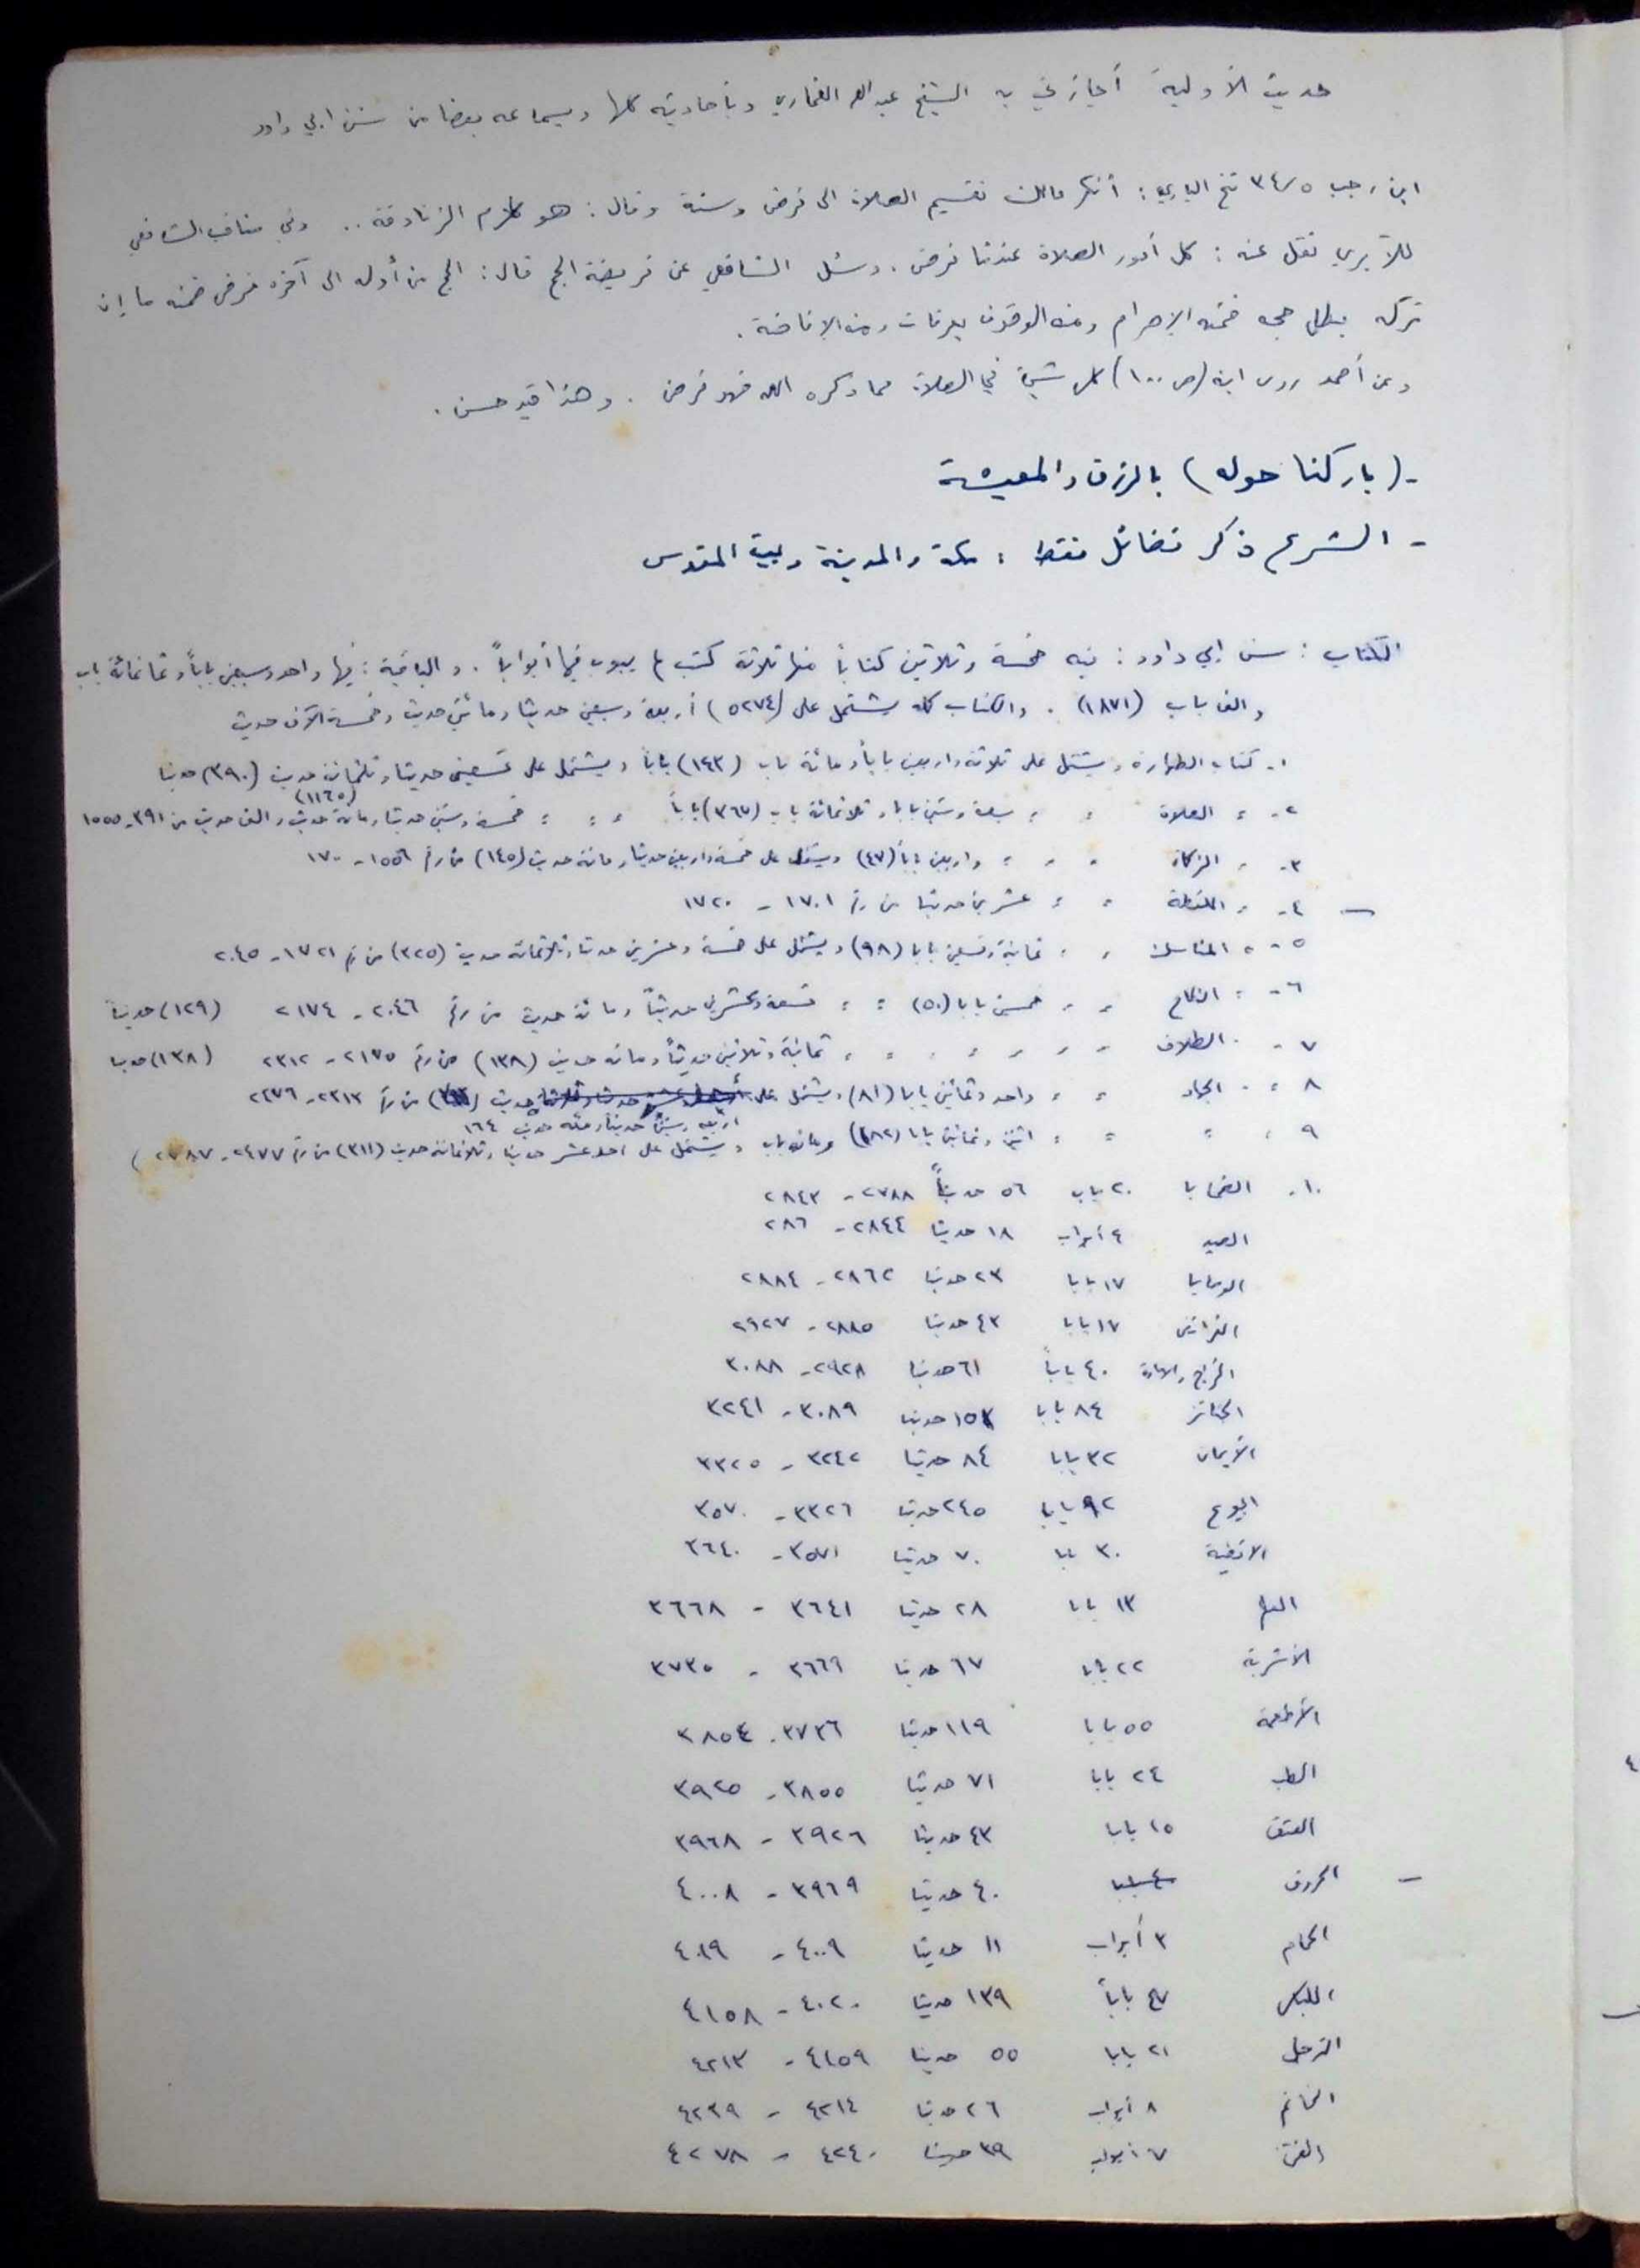 حديث الأولية أجازني به الشيخ عبد الله الغماري وبأحاديثه كلها وبسماعه بعضا من سنن ابي داود
ابن رجب ٣٤/٥ فتح الباري: أنكر مالك تقسيم الصلاة الى فرض وسنة وقال: هو كلام الزنادقة .. وفي مناقب الشافعي
للآبري نقل عنه: كل أمور الصلاة عندنا فرض. وسئل الشافعي عن فريضة الحج قال: الحج من أوله الى آخره فرض فمنه ما إن
تركه بطل حجه فمنه الإحرام ومنه الوقوف بعرفات ومنه الإفاضة.
وعن أحمد روى ابنه (ص ١٠٠) كل شيء في الصلاة مما ذكره الله فهو فرض. وهذا قيد حسن.
- (باركنا حوله) بالرزق والمعيشة
- الشرع ذكر فضائل فقط: مكة والمدينة وبيت المقدس
الكتاب: سنن ابي داود: فيه خمسة وثلاثين كتابا منها ثلاثة كتب لم يبوب فيها أبواباً. والباقية: فيها واحد وسبعين باباً وثمانمائة باب
والف باب (١٨٧١). والكتاب كله يشتمل على (٥٢٧٤) أربعة وسبعين حديثا ومائتي حديث وخمسة الآف حديث
١- كتاب الطهارة ويشتمل على ثلاثة واربعين باباً ومائة باب (١٤٣) باباً ويشتمل على تسعين حديثا وثلثمائة حديث (٣٩٠) حديثا
٢- " الصلاة " " سبعة وستين بابا وثلاثمائة باب (٣٦٧) باباً " " خمسة وستين حديثا ومائة حديث والف حديث (١١٦٥) من ٣٩١- ١٥٥٥
٣- " الزكاة " " " واربعين باباً (٤٧) ويشتمل على خمسة واربعين حديثا ومائة حديث (١٤٥) من رقم ١٥٥٦- ١٧٠٠
- ٤- " اللقطة " " عشرين حديثا من رقم ١٧٠١ - ١٧٢٠
٥- " المناسك " " ثمانية وتسعين بابا (٩٨) ويشتمل على خمسة وعشرين حديثا وثلاثمائة حديث (٣٢٥) من رقم ١٧٢١- ٢٠٤٥
٦- " النكاح " " خمسين بابا (٥٠) " " تسعة وعشرين حديثاً ومائة حديث من رقم ٢٠٤٦ - ٢١٧٤ (١٢٩) حديثاً
٧- " الطلاق " " " " " " ثمانية وثلاثين حديثاً ومائة حديث (١٣٨) من رقم ٢١٧٥- ٢٣١٢ (١٣٨) حديثا
٨ " الجهاد " " واحد وثمانين بابا (٨١) ويشتمل على حديث من رقم ٢٣١٣- ٢٤٧٦
اربعة وستين حديثاً ومئة حديث ١٦٤
٩ " " " " اثنين وثمانين بابا (١٨٢) ومائة باب ويشتمل على احد عشر حديثا وثلاثمائة حديث (٣١١) من رقم ٢٤٧٧- ٢٧٨٧)
١٠- الضحايا ٢٠ باب ٥٦ حديثاً ٢٧٨٨ - ٢٨٤٣
الصيد ٤ أبواب ١٨ حديثا ٢٨٤٤ - ٢٨٦
الوصايا ١٧ بابا ٢٣ حديثا ٢٨٦٢ - ٢٨٨٤
الفرائض ١٧ بابا ٤٣ حديثا ٢٨٨٥ - ٢٩٢٧
الخراج والامارة ٤٠ باباً ٦١ حديثا ٢٩٢٨ - ٣٠٨٨
الجنائز ٨٤ بابا ١٥٣ حديثا ٣٠٨٩ - ٣٢٤١
الأيمان ٣٢ بابا ٨٤ حديثا ٣٢٤٢ - ٣٣٢٥
البيوع ٩٢ بابا ٢٤٥ حديثا ٣٣٢٦ - ٣٥٧٠
الاقضية ٣٠ بابا ٧٠ حديثا ٣٥٧١ - ٣٦٤٠
العلم ١٣ بابا ٢٨ حديثا ٣٦٤١ - ٣٦٦٨
الأشربة ٢٢ بابا ٦٧ حديثا ٣٦٦٩ - ٣٧٣٥
الأطعمة ٥٥ بابا ١١٩ حديثا ٣٧٣٦ - ٣٨٥٤
الطب ٢٤ بابا ٧١ حديثا ٣٨٥٥ - ٣٩٢٥
العتق ١٥ بابا ٤٣ حديثا ٣٩٢٦ - ٣٩٦٨
- الحروف ٤٠ حديثا ٣٩٦٩ - ٤٠٠٨
الحمام ٣ أبواب ١١ حديثا ٤٠٠٩ - ٤٠١٩
اللباس ٤٧ باباً ١٣٩ حديثا ٤٠٢٠ - ٤١٥٨
الترجل ٢١ بابا ٥٥ حديثا ٤١٥٩ - ٤٢١٣
الخاتم ٨ أبواب ٢٦ حديثا ٤٢١٤ - ٤٢٣٩
الفتن ٧ أبواب ٣٩ حديثا ٤٢٤٠ - ٤٢٧٨